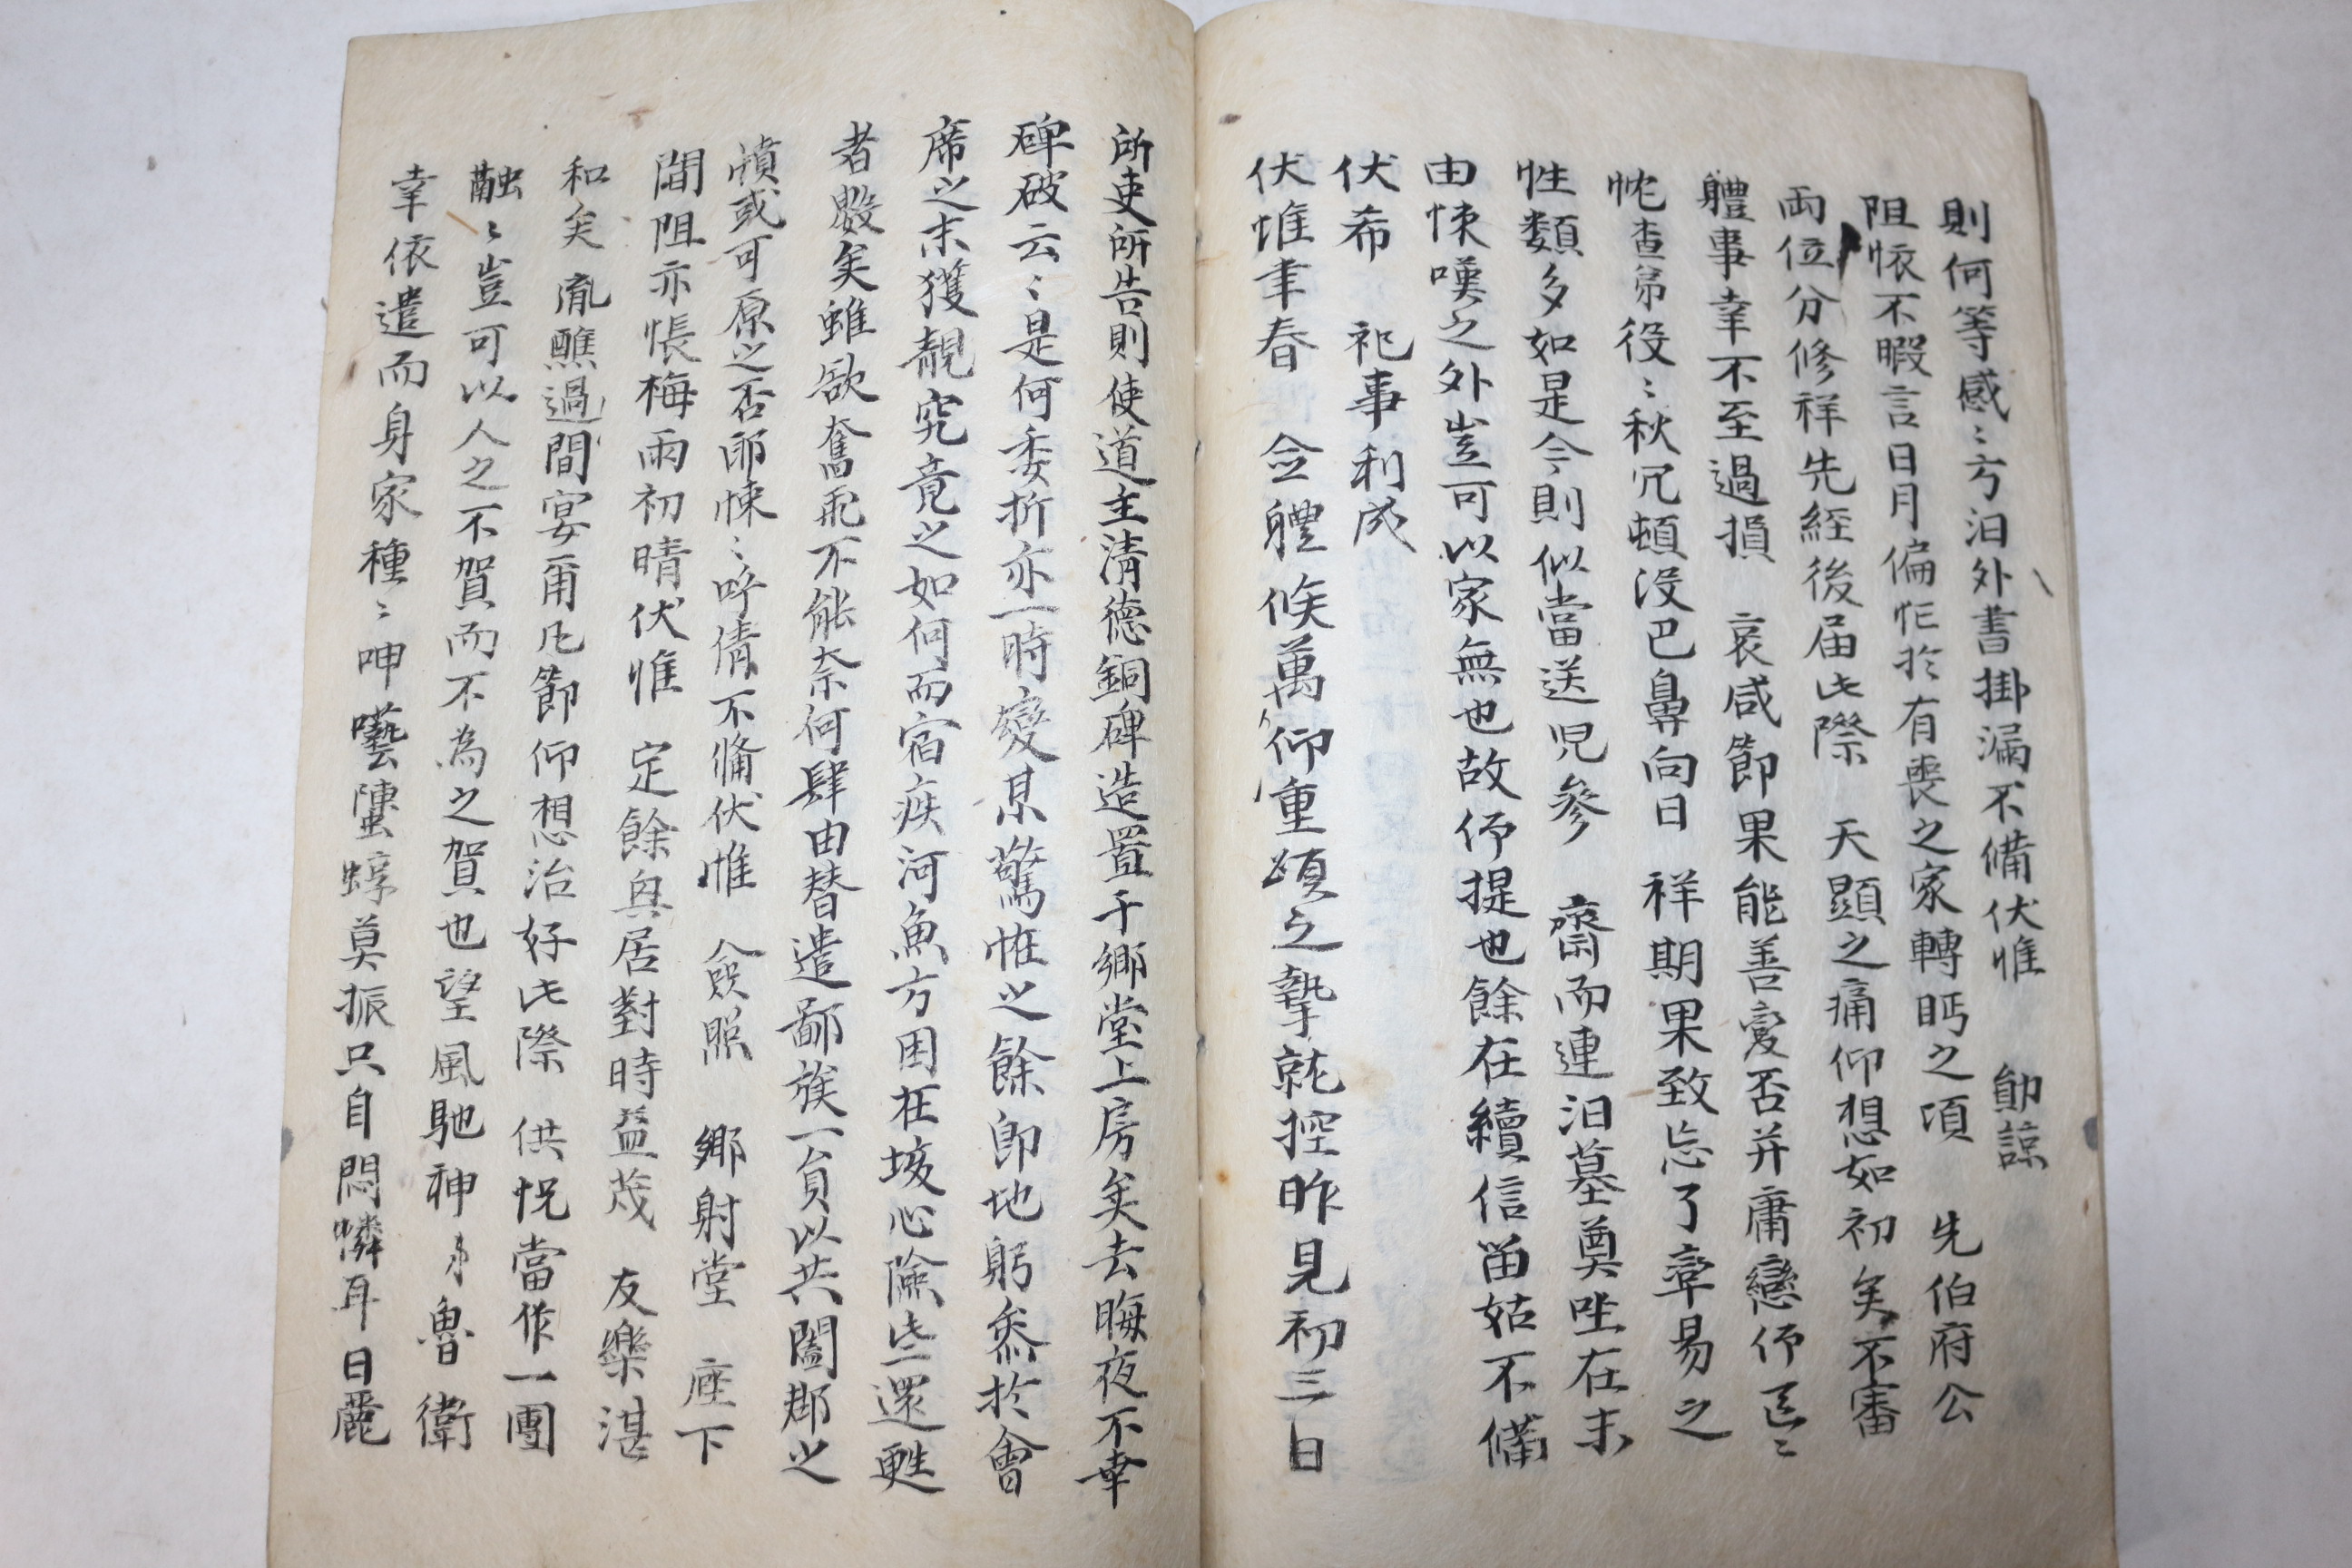 則何等感〻方汨外書掛漏不備伏惟 勛諒
阻懷不暇言日月偏忙於有喪之家轉眄之頃 先伯府公
兩位分修祥先經後届此際 天顯之痛仰想如初矣不審
軆事幸不至過損 哀咸節果能善愛否并庸戀仰區〻
忱查弟役〻秋冗頓没巴鼻向日 祥期果致忘了窂易之
性類多如是今則似當送児參 齋而連汨墓奠坐在未
由悚嘆之外豈可以家無也故仰提也餘在續信留姑不備
伏希 祀事利成
伏惟聿春 僉軆候萬仰重頌之摯就控昨見初三日
所吏所告則使道主清德銅碑造置于鄉堂上房矣去晦夜不幸
碑破云〻是何委折亦一時變某驚惟之餘即地躬叅於會
席之末獲覩究竟之如何而宿疾河魚方困在垓心險些還甦
者數矣雖欲奮飛不能奈何肆由替遣鄙族一員以共闔郡之
憤或可原之否郎悚〻呼倩不備伏惟 僉照 鄉射堂 座下
間阻亦悵梅雨初晴伏惟 定餘興居對時益茂 友樂湛
和矣 胤醮過間宴甫凡節仰想治好此際 供悅當作一團
融〻豈可以人之不賀而不為之賀也望風馳神弟魯衛
幸依遣而身家種〻呻囈薑蜳莫振只自悶憐耳日麗